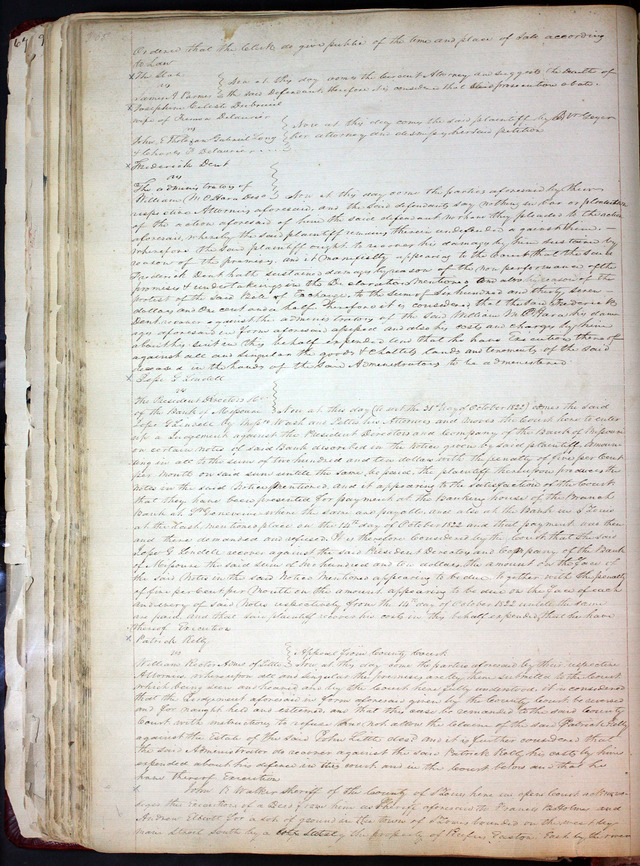 Ordered that the Clerk do give public of the time and place of Sale according
to Law
The State
vs
James J Purnes
Now at this day comes the Circuit Attorney and suggests the death of
the said Defendant, therefore it is considered that said prosecution abate.
Josephine Celeste
wife of Delaurier
vs
John, E Tholozan Gabriel Long
& Charles F Delaurier
Now at this day come the said plaintiff by
her attorney and petition
Frederick Dent
vs
The administrators of
William McO'Hara Decd
Now at this day come the parties aforesaid by their
respective Attorneys aforesaid, and the said defendants say nothing in bar or preclusion
of the action aforesaid of him the said defendant nor have they pleaded to the action
aforesaid, whereby the said plaintiff remains therein undefended against them. —
Wherefore the said plaintiff ought to recover his damages by him sustained by
reason of the premises, and it manifestly appearing to the Court that the said
Frederick Dent hath sustained damages by reason of the non performance of the
promises & undertakings in the Declaration mentioned and also by reason of the
protest of the said Bill of Exchange to the sum of Six hundred and thirty seven
dollars and One cent and a half. Therefore it is considered that the said Frederick
Dent recover against the administrators of the said William McO'Hara his dama
ges aforesaid in form aforesaid assessed and also his costs and charges by him
about his suit in this behalf expended and that he have Execution thereof
against all and singular the goods & chattels lands and tenements of the said
deceased in the hands of the said Administrators to be administered
Jasper G Lindell
vs
The President Directors &c
of the Bank of Missouri
Now at this day (to wit the 21st day of October 1822) comes the said
G Lindell by his Attornies and moves the Court here to enter
up a Judgement against the President Directors and Company of the Bank of Missouri
on certain notes of said Bank described in the notice given by said plaintiff, amoun
ting in all to the sum of two hundred and ten dollars with the penalty of five per Cent
per month on said sum until the same be paid. The plaintiff thereupon produces the
notes in the said Notice Mentioned, and it appearing to the satisfaction of the Court
that they have been presented for payment at the Banking house of the Branch
Bank at St Genevieve where the same are payable and also at the Bank in St Louis
at the place in the 14th day of October 1822 and that payment was then
and there demanded and refused. It is therefore Considered by the Court that the said
G Lindell recover against the said President Directors and Company of the Bank
of Missouri the said sum of two hundred and ten dollars, the amount on the face of
the said Notes in the said Notice Mentioned appearing to be due together with the penalty
of five per Cent per Month on the amount appearing to be due on the face of each
and every of said Notes respectively from the 14th day of October 1822 until the same
are paid and that said plaintiff recover his costs in this behalf expended & that he have
thereof Execution
Patrick Kelly
vs
William Rector Admr of Little
Appeal from County Court
Now at this day come the parties aforesaid by their respective
Attorneys whereupon all and singular the premises are by them submitted to the Court
which being seen and heard and by the Court here fully understood it is considered
that the Judgement aforesaid in form aforesaid given by the County Court be reversed
and for naught held and esteemed and that this case be remanded to the said County
Court with instructions to refuse and not allow the claim of the said Patrick Kelly
against the Estate of the said John Little decd and it is further considered that
the said Administrator do recover against the said Patrick Kelly his costs by him
expended about his defence in this Court and in the Court below and that he
have thereof Execution
John K Walker Sheriff of the County of St Louis here in open Court acknow
ledges the execution of a Deed from him as Sheriff aforesaid to Francis and
Andrew Elliott for a lot of ground in the town of St Louis bounded on the west by
main Street South by a the property of Rufus Easton East by the river